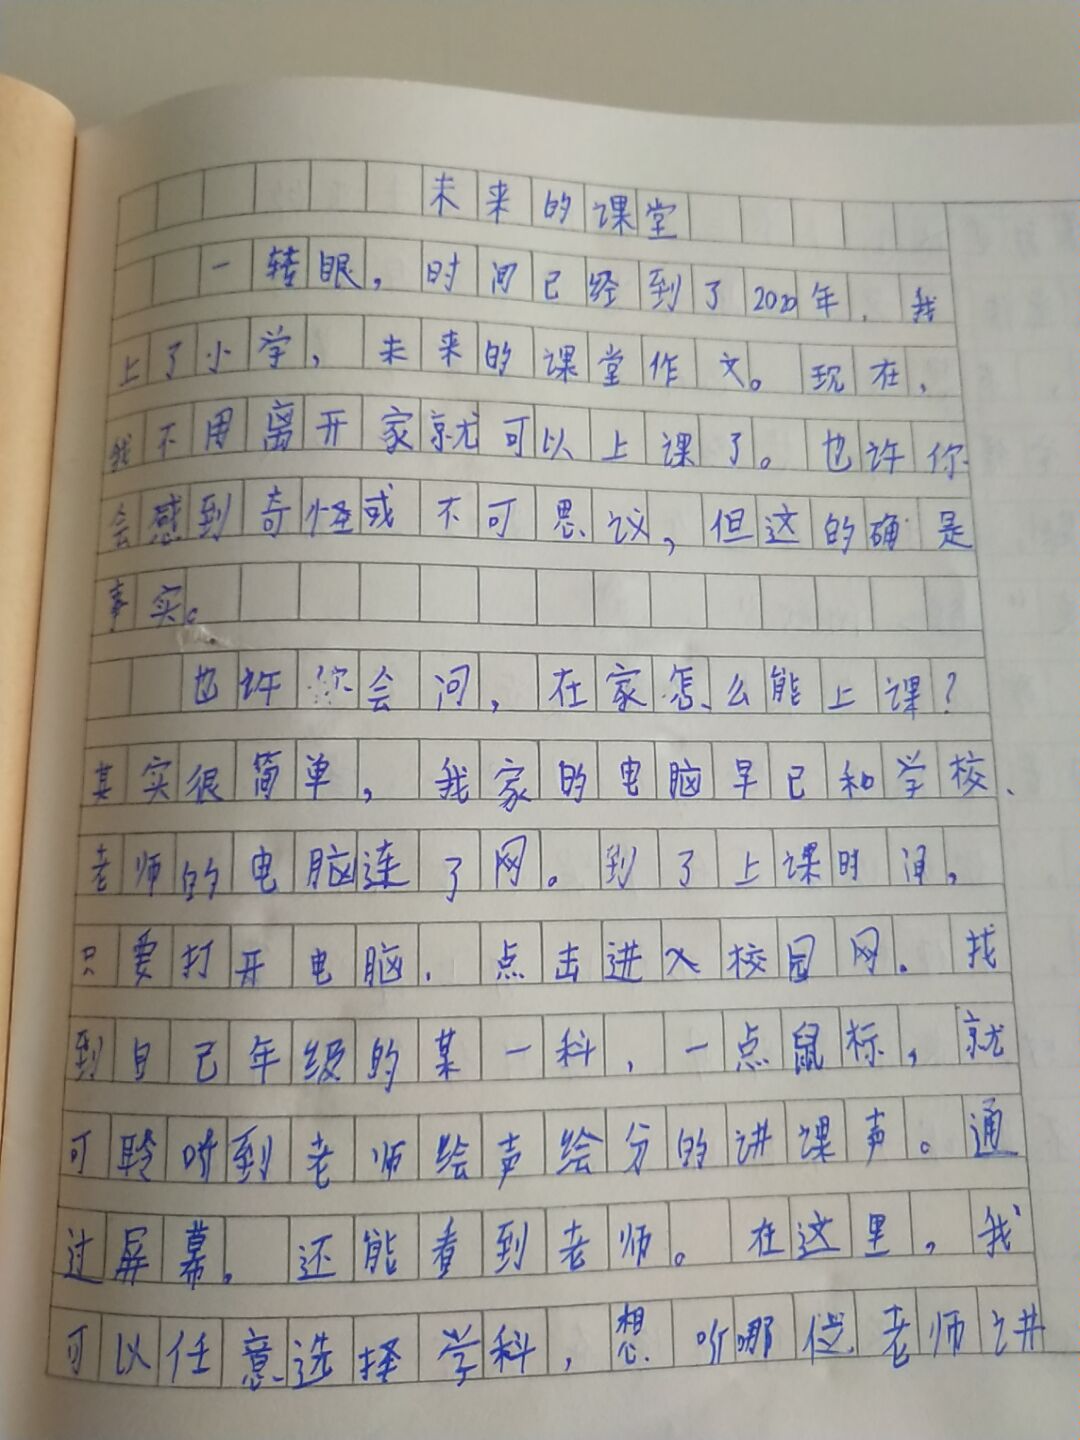 未来的课堂
一转眼，时间已经到了2020年，我
上了小学，未来的课堂作文。现在，
我不用离开家就可以上课了。也许你
会感到奇怪或不可思议，但这的确是
事实。
也许你会问，在家怎么能上课？
其实很简单，我家的电脑早已和学校、
老师的电脑连了网。到了上课时间，
只要打开电脑，点击进入校园网。找
到自己年级的某一科，一点鼠标，就
可聆听到老师绘声绘分的讲课声。通
过屏幕，还能看到老师。在这里，我
可以任意选择学科，想听哪位老师讲